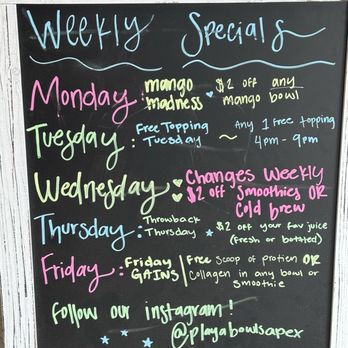 Weekly Specials
Monday: mango madness ♥ $2 off any mango bowl
Tuesday: Free Topping Tuesday ~ Any 1 free topping 4pm-9pm
Wednesday ♥ Changes Weekly
♥ $2 off Smoothies OR Cold brew
Thursday: Throwback Thursday ★ $2 off your fav juice (fresh or bottled)
Friday: Friday GAINS | Free Scoop of protien OR Collagen in any bowl or smoothie
Follow our instagram!
@playabowlsapex